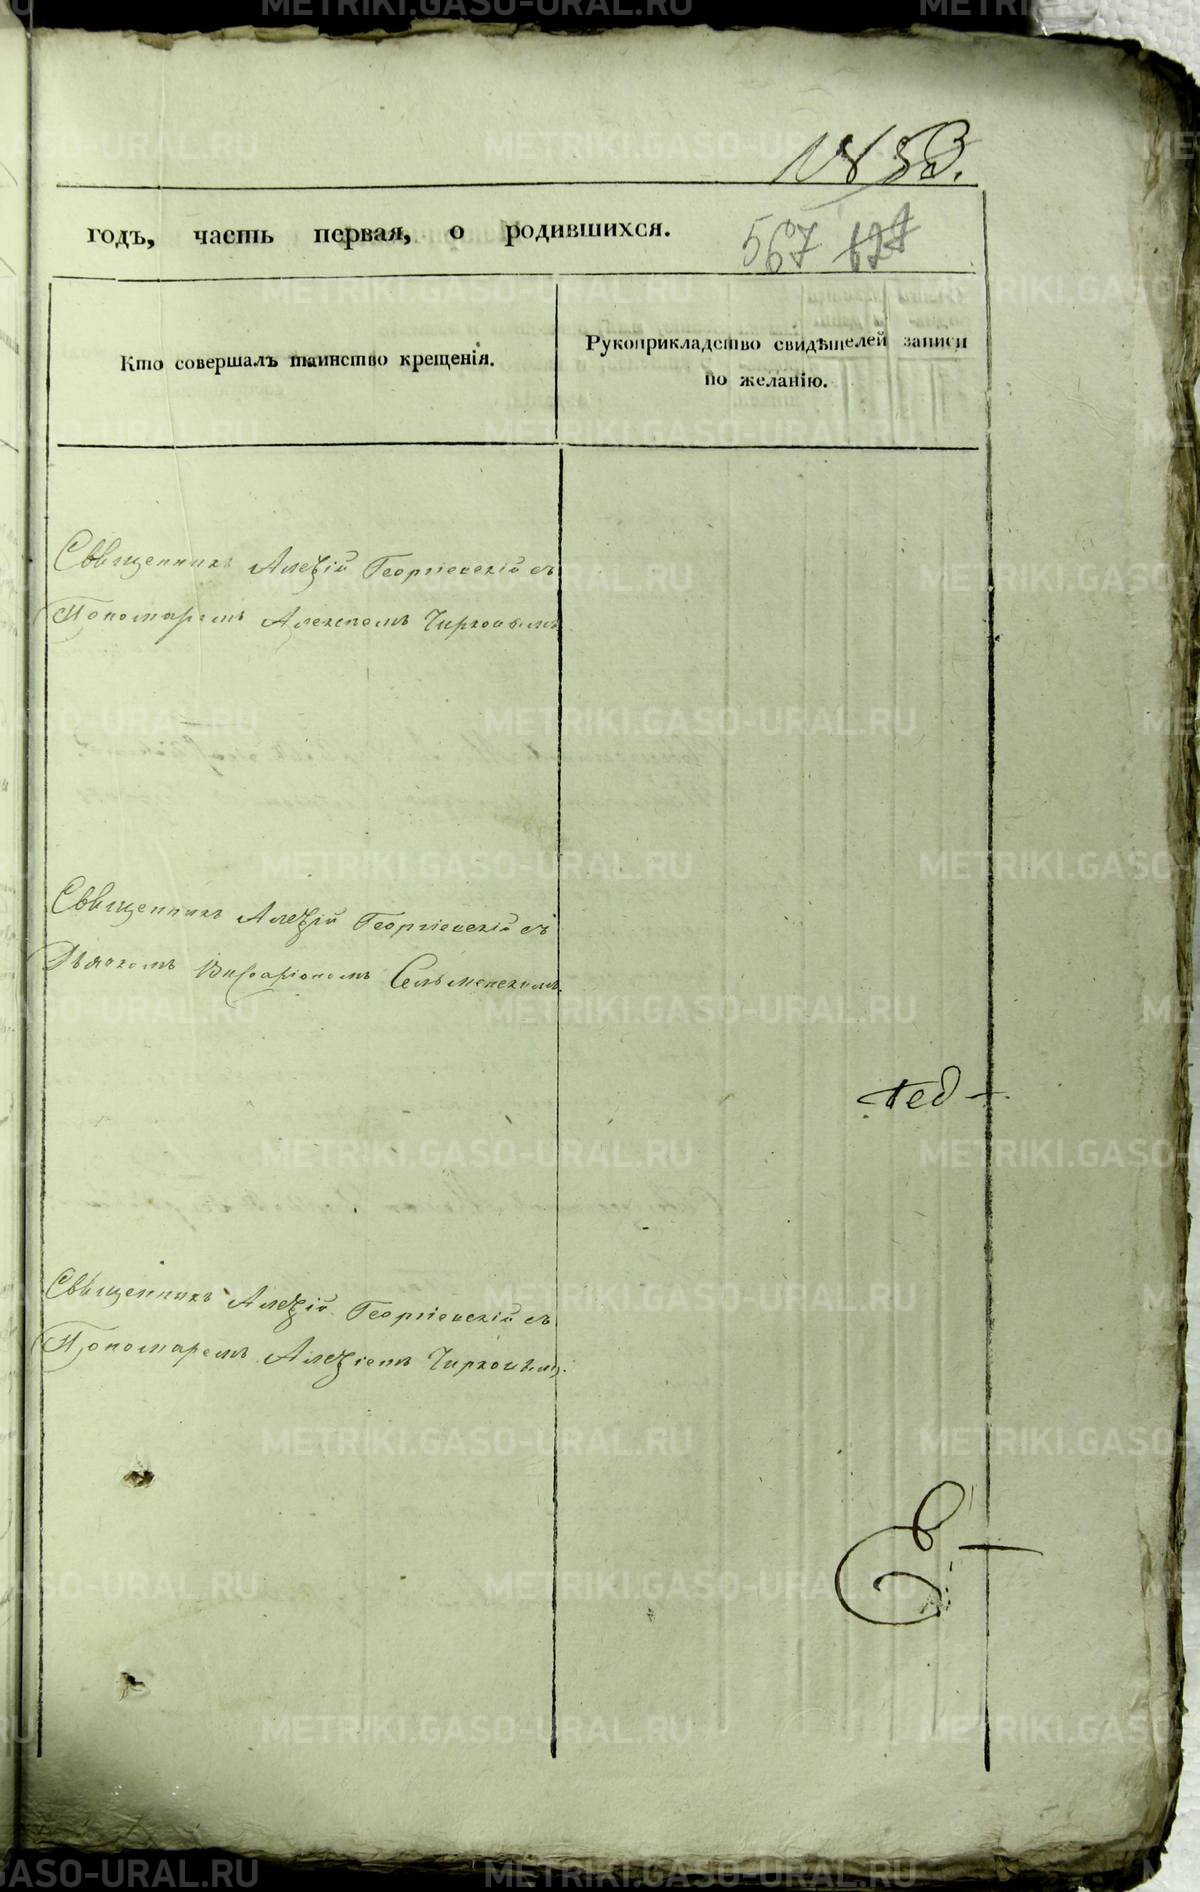 1853.
годъ, часть первая, о родившихся.
567 127
Кто совершалъ таинство крещенія.
Рукоприкладство свидѣтелей записи
по желанію.
Священникъ Алексій Георгіевскій съ
Пономаремъ Алексѣемъ Чирковымъ
Священникъ Алексій Георгіевскій съ
Дьячкомъ Виссаріономъ Сельменскимъ.
Священникъ Алексій Георгіевскій съ
Пономаремъ Алексіемъ Чирковымъ.
METRIKI.GASO-URAL.RU